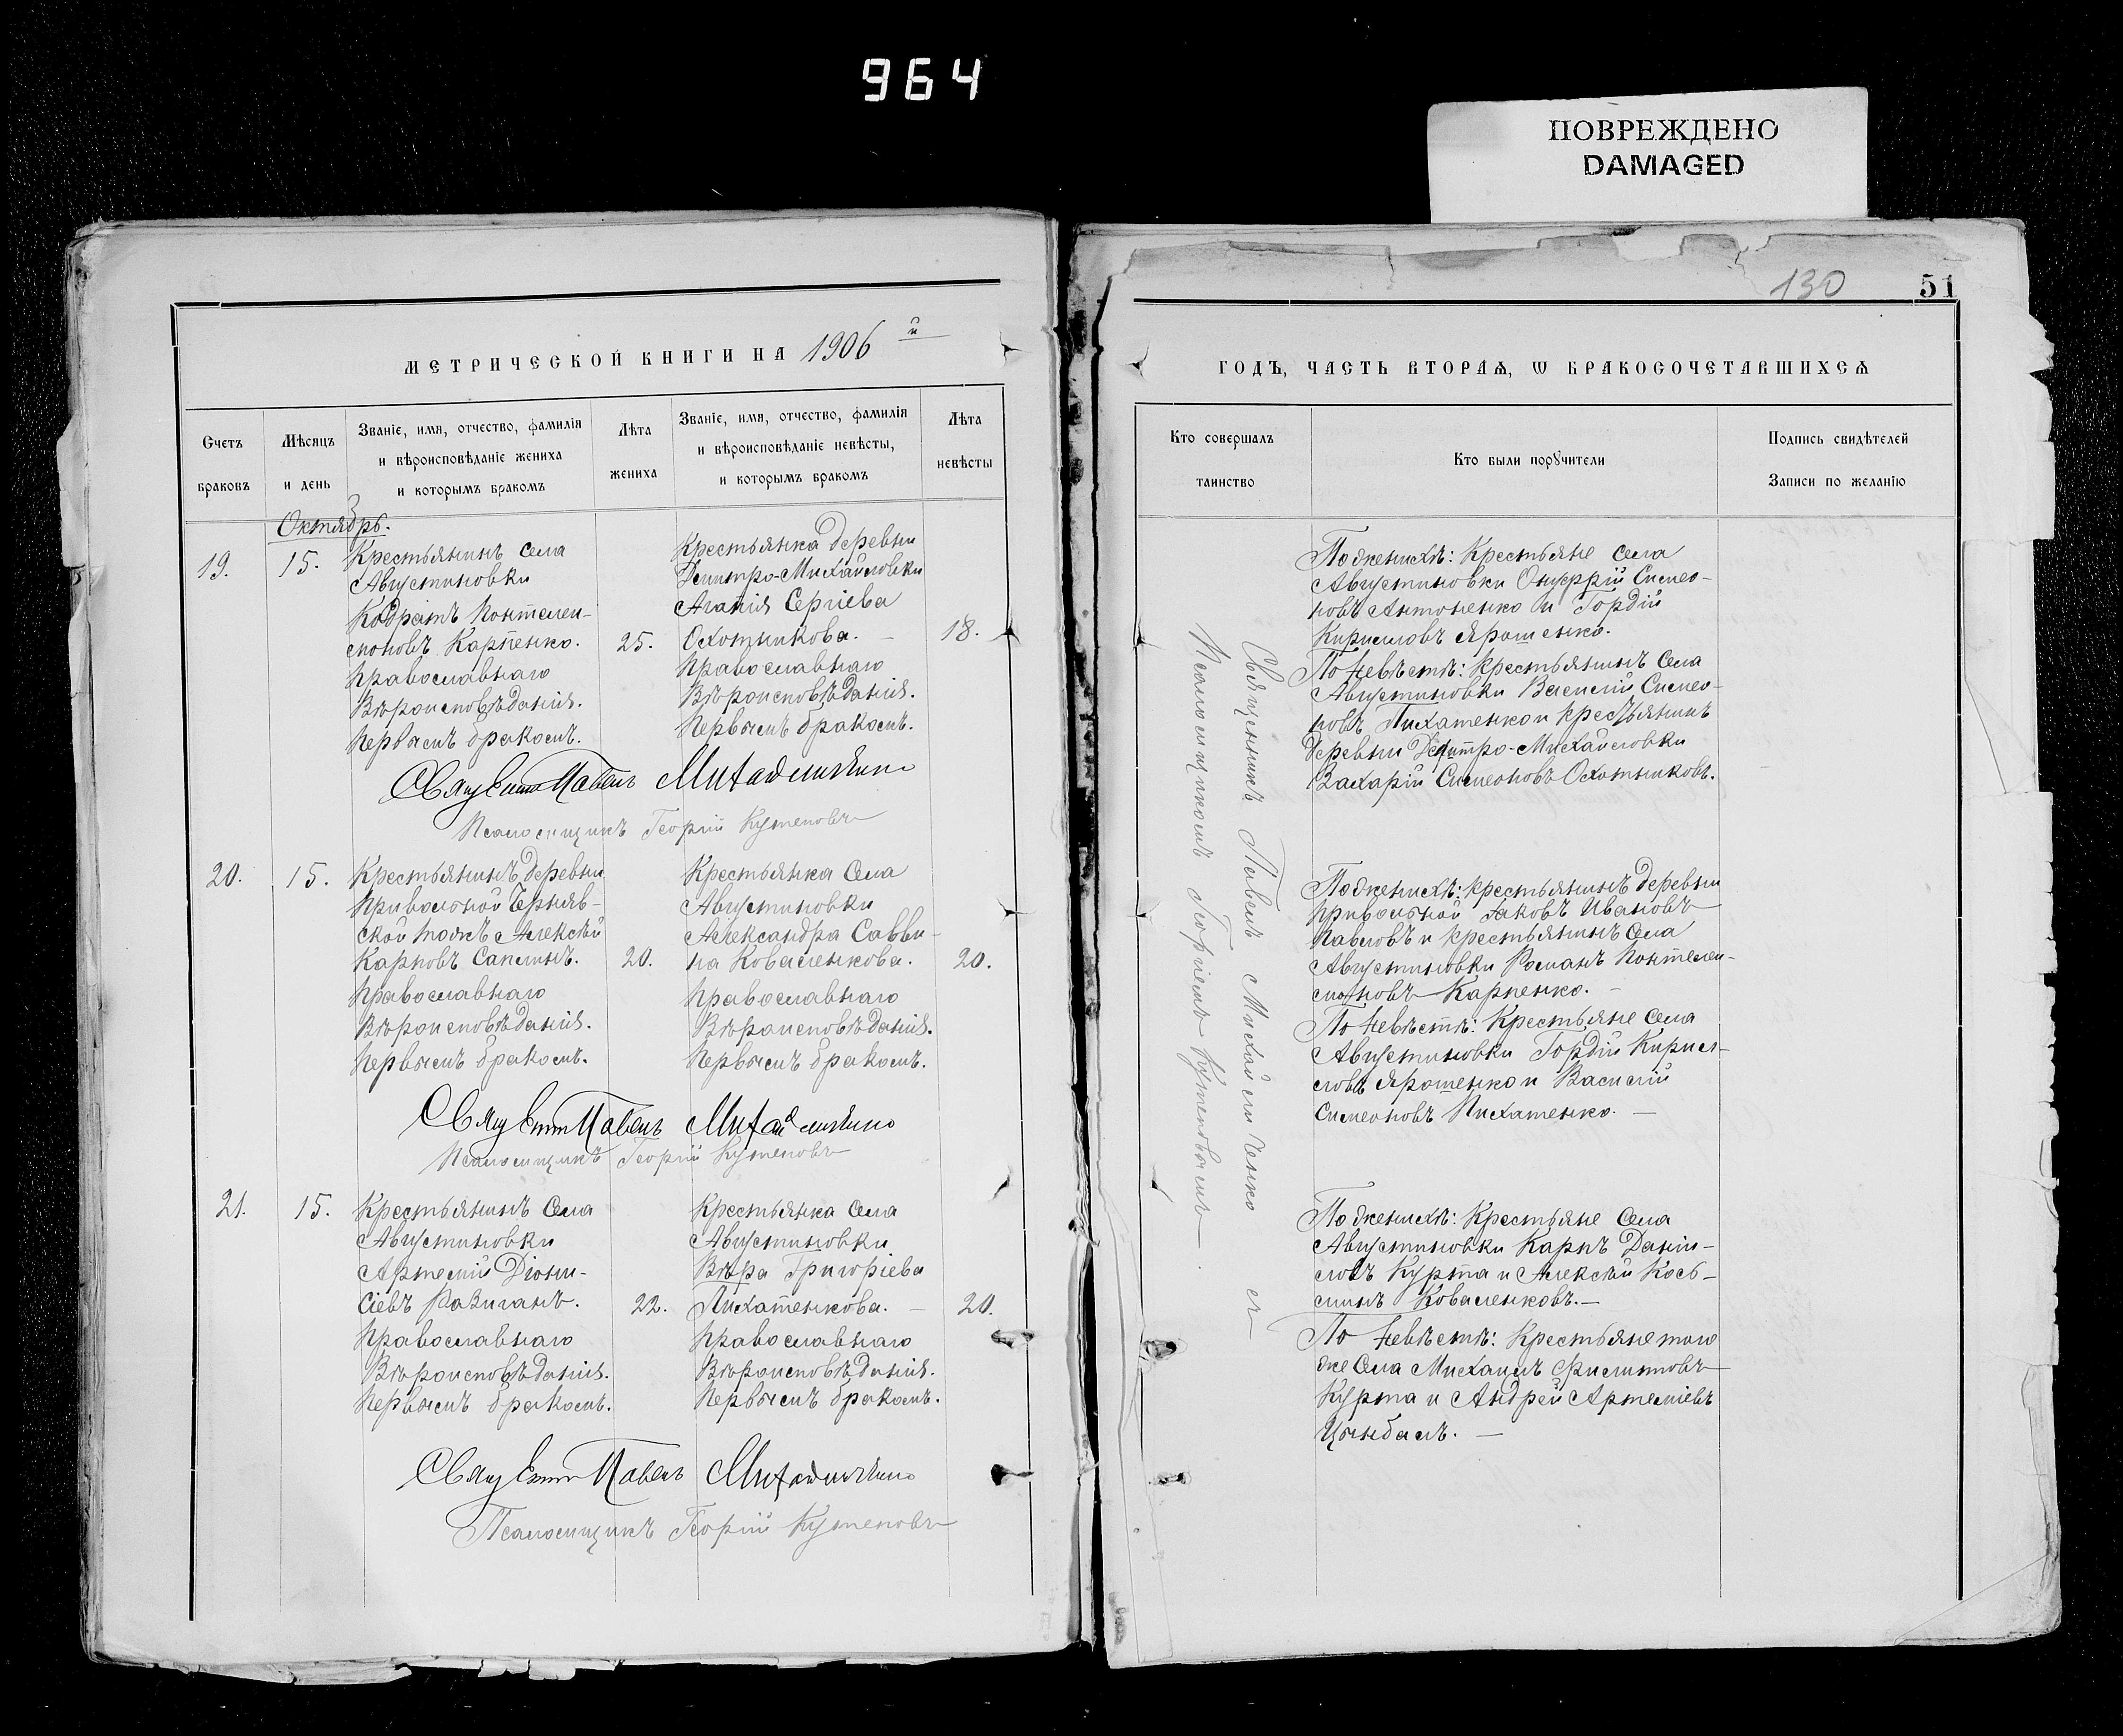 964
ПОВРЕЖДЕНО
DAMAGED
МЕТРИЧЕСКОЙ КНИГИ НА 1906 й
Счетъ
браковъ
Мѣсяцъ
и день
Званіе, имя, отчество, фамилія
и вѣроисповѣданіе жениха
и которымъ бракомъ
Лѣта
жениха
Званіе, имя, отчество, фамилія
и вѣроисповѣданіе невѣсты,
и которымъ бракомъ
Лѣта
невѣсты
Октябрь.
19.
15.
Крестьянинъ села
Августиновки
Кодратъ Понтелеи-
моновъ Карпенко.
православнаго
Вѣроисповѣданія.
первымъ бракомъ.
25.
Крестьянка деревни
Дмитро-Михайловки
Агапія Сергіева
Охотникова. —
православнаго
Вѣроисповѣданія.
первымъ бракомъ.
18.
Павелъ
Псаломщикъ Георгій Кутеповъ
20.
15.
Крестьянинъ деревни
Привольной Черняв-
ской тожъ Алексѣй
Карповъ Сапелинъ.
православнаго
Вѣроисповѣданія.
первымъ бракомъ.
20.
Крестьянка села
Августиновки
Александра Савви-
на Коваленкова.
православнаго
Вѣроисповѣданія.
первымъ бракомъ.
20.
Павелъ
Псаломщикъ Георгій Кутеповъ
21.
15.
Крестьянинъ села
Августиновки
Артемій Діони-
сіевъ
православнаго
Вѣроисповѣданія.
первымъ бракомъ.
22.
Крестьянка села
Августиновки
Вѣра Григоріева
Лихатенкова. —
православнаго
Вѣроисповѣданія.
первымъ бракомъ.
20.
Павелъ
Псаломщикъ Георгій Кутеповъ
130
51
ГОДЪ, ЧАСТЬ ВТОРАѦ, Ѡ БРАКОСОЧЕТАВШИХСѦ
Кто совершалъ
таинство
Кто были порꙋчители
Подпись свидѣтелей
Записи по желанію
Священникъ Павелъ Михайличенко съ
Псаломщикомъ Георгіемъ Кутеповымъ
По женихѣ: Крестьяне села
Августиновки Онуфрій Симео-
новъ Антоненко и Гордій
Кирилловъ Ярошенко.
По невѣстѣ: крестьянинъ села
Августиновки Василій Симео-
новъ Лихатенко и крестьянинъ
деревни Дмитро-Михайловки
Захарій Симеоновъ Охотниковъ.
По женихѣ: крестьянинъ деревни
Привольной Іаковъ Ивановъ
Павловъ и крестьянинъ села
Августиновки Романъ Понтелеи-
моновъ Карпенко. —
По невѣстѣ: Крестьяне села
Августиновки Гордій Кирил-
ловъ Ярошенко и Василій
Симеоновъ Лихатенко. —
По женихѣ: Крестьяне села
Августиновки Карпъ Даніи-
ловъ Курта и Алексѣй Кось-
минъ Коваленковъ. —
По невѣстѣ: Крестьяне того
же села Михаилъ Филиповъ
Курта и Андрей Артеміевъ
Цымбалъ. —